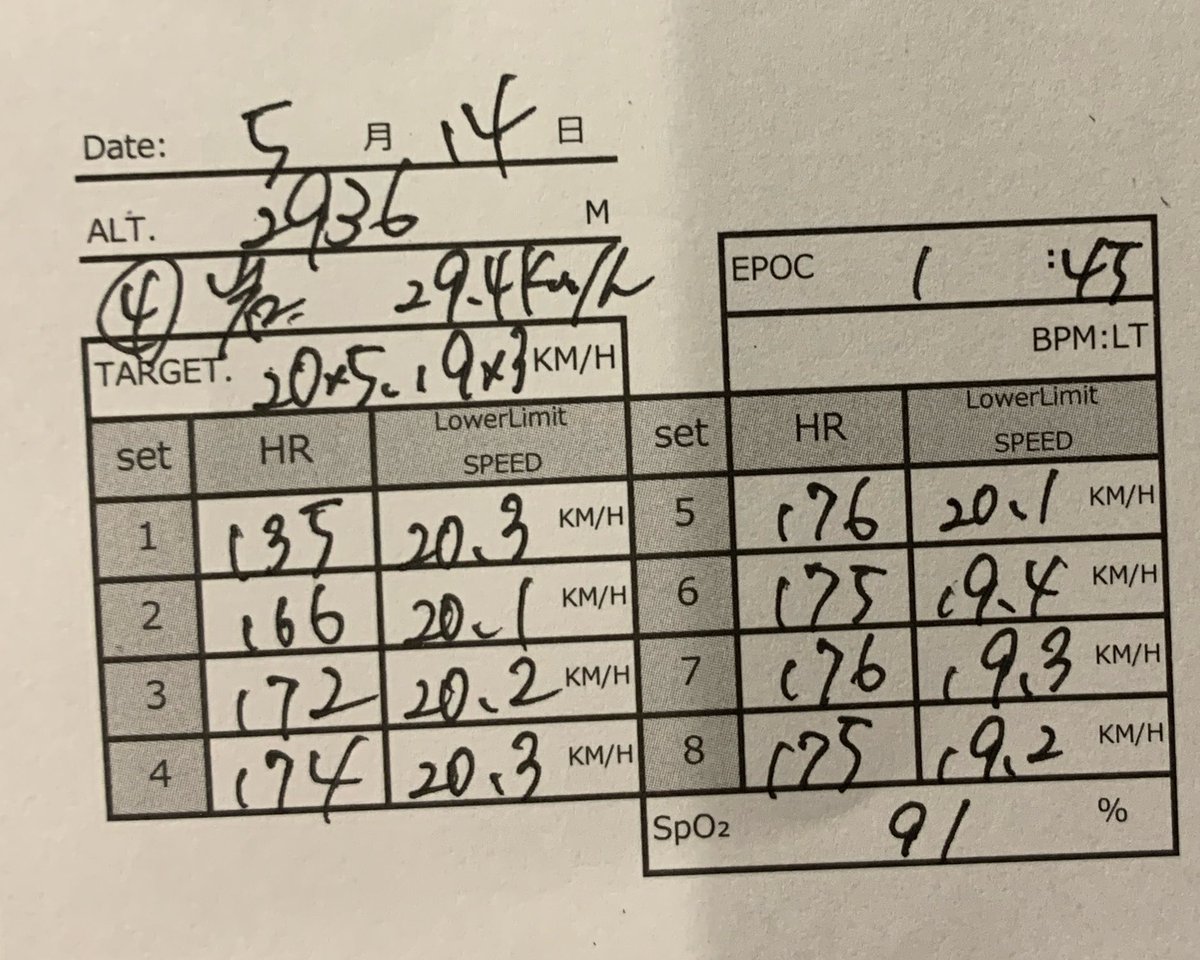 Date: 5 月 14 日
ALT. 2936 M
④ 29.4Km/h
TARGET. 20×5.19×3 KM/H
EPOC 1 :45
BPM:LT
set HR LowerLimit SPEED
1 135 20.3 KM/H
2 166 20.1 KM/H
3 172 20.2 KM/H
4 174 20.3 KM/H
set HR LowerLimit SPEED
5 176 20.1 KM/H
6 175 19.4 KM/H
7 176 19.3 KM/H
8 175 19.2 KM/H
SpO₂ 91 %